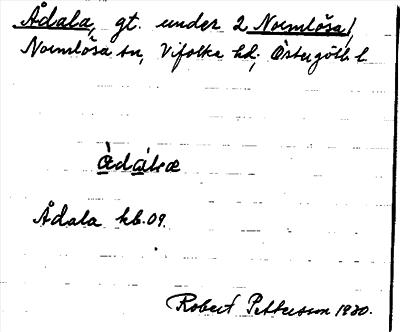 Ådala, gt. under 2 Normlösa,
Normlösa sn, Vifolka hd, Östergötl. l
àdálæ
Ådala kb. 09.
Robert Pettersson 1930.